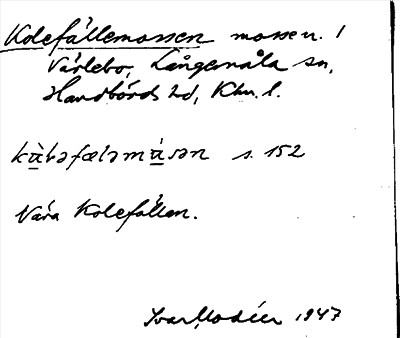 Kolefällemossen mosse u. 1
Värlebo, Långemåla sn,
Handbörds hd, Klm. l.
kὰ̱ləfæləmá̱sən s. 152
Nära Kolefällen.
Ivar Modéer 1947